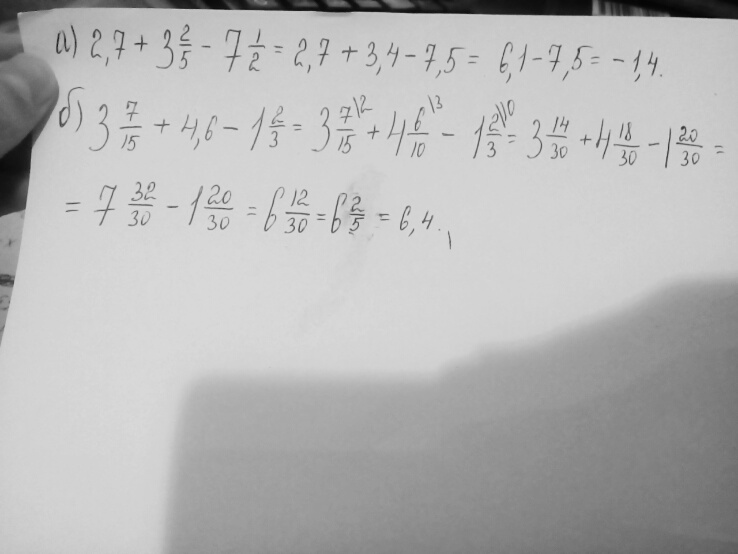 а) 2,7 + 3 2/5 - 7 1/2 = 2,7 + 3,4 - 7,5 = 6,1 - 7,5 = -1,4.
б) 3 7/15 + 4,6 - 1 2/3 = 3 7/15 \2 + 4 6/10 \3 - 1 2/3 \10 = 3 14/30 + 4 18/30 - 1 20/30 =
= 7 32/30 - 1 20/30 = 6 12/30 = 6 2/5 = 6,4.